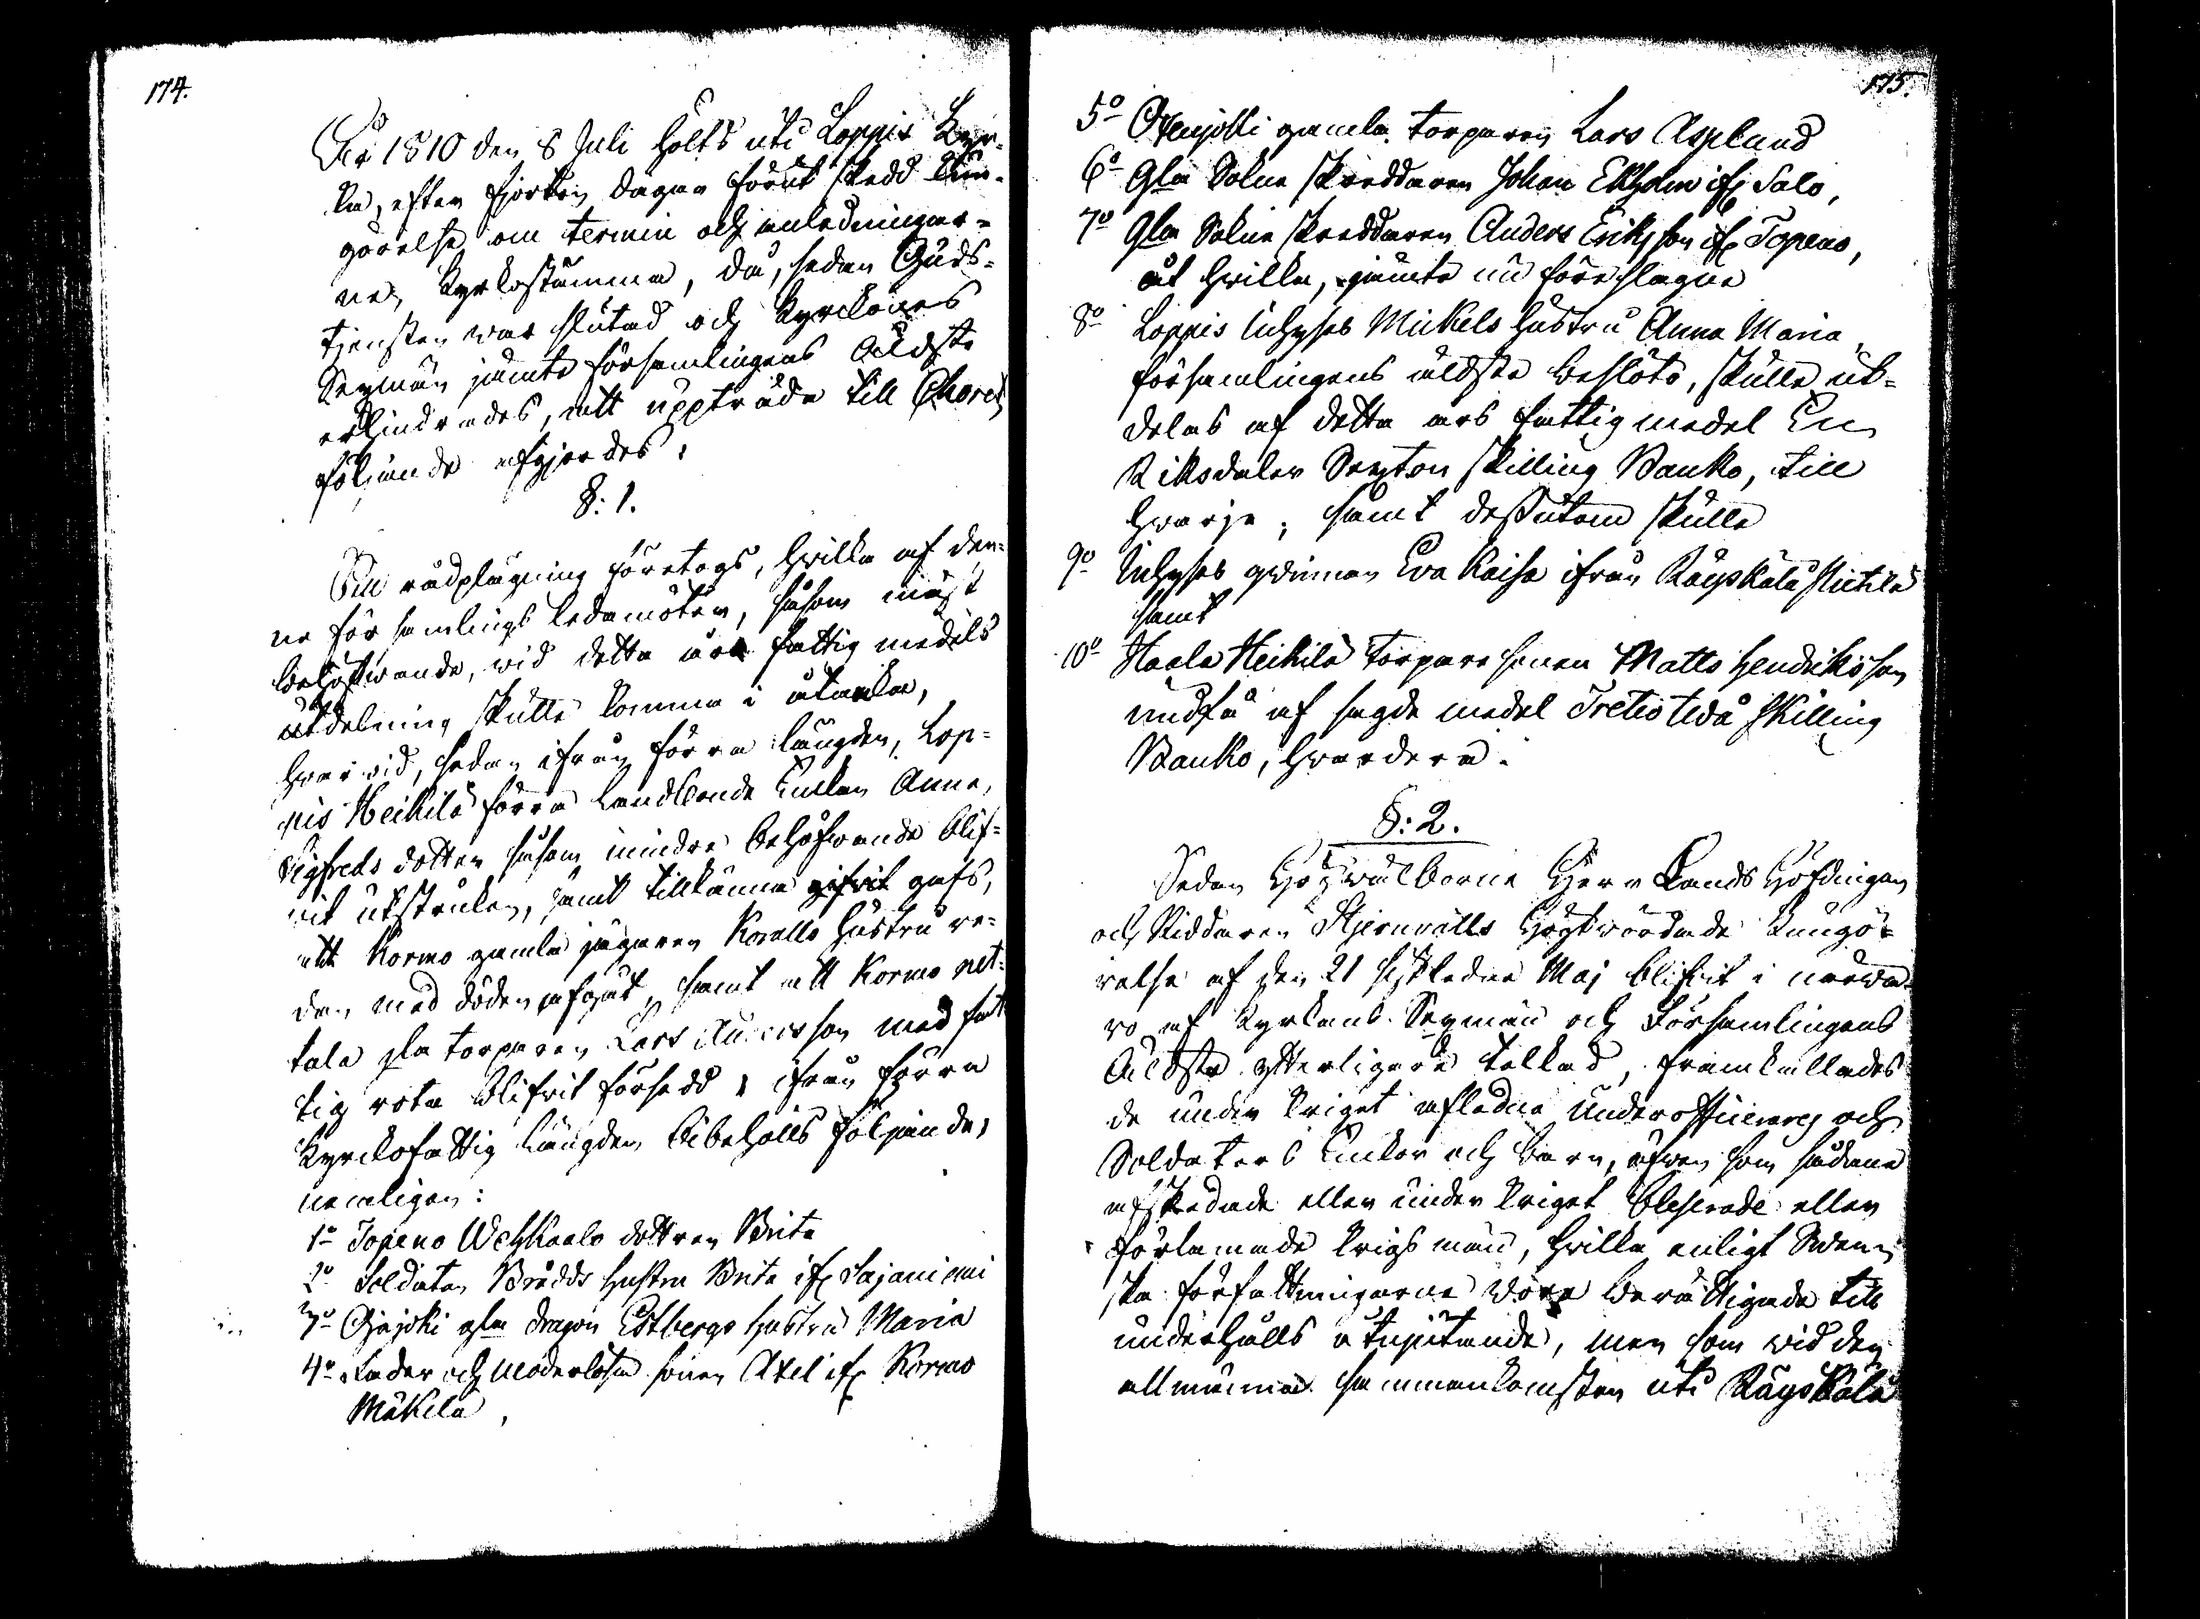 174.
År 1810 den 8 Juli hölts uti Loppis Kyr-
ka, efter fjorton dagar förut skedd kun-
görelse om termin och anledningar-
ne, Kyrkostämma, då, sedan Guds-
tjensten war slutad och Kyrckönes
Sexmän jämte församlingens Äldste
erhindrades, att uppträda till Choret,
följande afgjordes:
§: 1.
Till rådplägning företogs, hwilka af den-
ne församlings ledamöter, såsom mäst
behöfwande, wid detta års fattig medels
utdelning skulle komma i åtanka,
hwarwid, sedan ifrån förra längden, Lop-
pis Heikilä förra Landbonde Enkan Anna
Sigfreds dotter såsom mindre behöfwande blif-
wit utstruken, samt tillkänna gifvit gafs,
att Kormo gamla jägaren Koralls hustru re-
dan med döden afgåt, samt att Kormo pet-
tala gla torparen Lars Andersson med fat-
tig rota blifvit försedd, ifrån förra
Kyrckofattig Längden bibehölls följande,
nemligen:
1o Topeno Wehkaalo dottren Brita
2o Soldaten Brädds hustru Brita ifr Sajaniemi
3o Ojajoki gla dragon Estbergs hustru Maria
4o Fader och Moderlösa sonen Axel ifr Kormo
Mäkilä,
175.
5o Ojajoki gamla torparen Lars Asplund
6o Gla Sokne skreddaren Johan Ekholm ifr Salo,
7o Gla Sokne skreddaren Anders Eriksson ifr Topeno,
åt hwilka, jämte nu föreslagne
8o Loppis Inhyses Mickels hustru Anna Maria,
församlingens äldste beslöto, skulle ut-
delas af detta års fattigmedel En
Riksdaler Sexton skilling Banko, till
hwarje; samt dessutom skulle
9o Inhyses qwinnan Eva Kaisa ifrån Räyskälä
samt
10o Haala Heikilä torpare sonen Matts Hendriksson
undfå af sagde medel Tretiotwå skilling
Banko, hwardera.
§: 2.
Sedan Högwälborne Herr Lands Höfdingen
och Riddaren Stjernvalls Högtwördade kungö-
relse af den 21 sistledne Maj blifvit i närwa-
ro af Kyrkans Sexmän och Församlingens
Äldste ytterligare tolkad, framkallades
de under kriget afledne Underofficerares och
Soldaters Enkor och barn, äfwen som sådane
afskedade eller under kriget blesserade eller
förlamade krigsmän, hwilka enligt Swen-
ska författningarne wore berättigade till
underhålls åtnjutande, men som wid den
allmänna sammankomsten uti Räyskälä